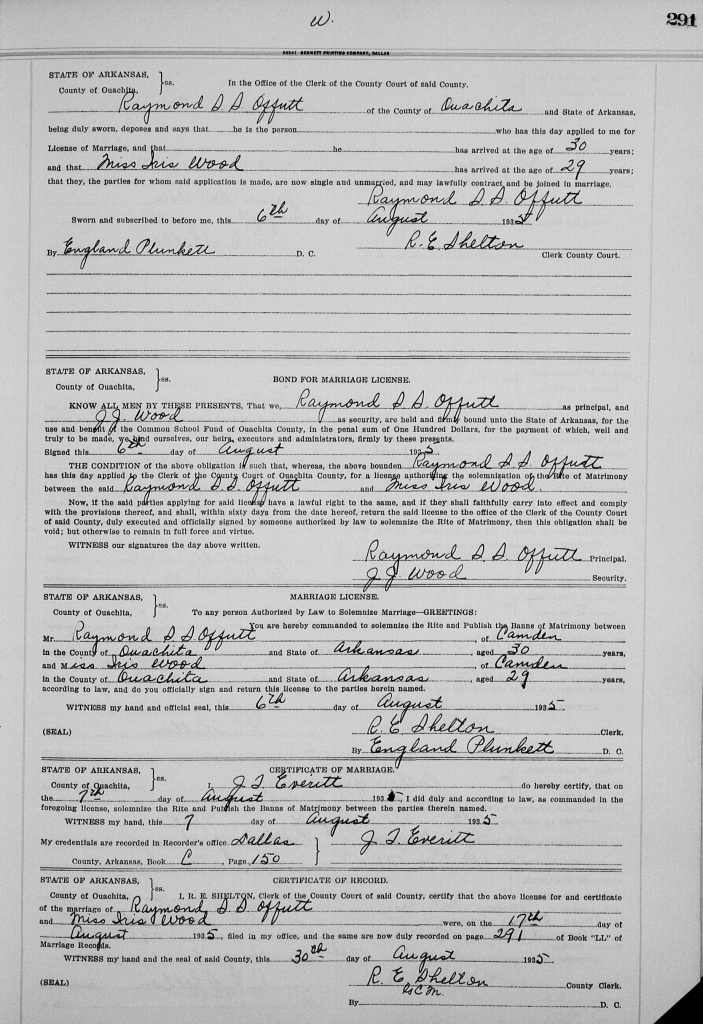 W.
291
STATE OF ARKANSAS,
County of Ouachita, }ss. In the Office of the Clerk of the County Court of said County.
Raymond S. S. Offutt of the County of Ouachita and State of Arkansas,
being duly sworn, deposes and says that he is the person who has this day applied to me for
License of Marriage, and that he has arrived at the age of 30 years;
and that Miss Iris Wood has arrived at the age of 29 years;
that they, the parties for whom said application is made, are now single and unmarried, and may lawfully contract and be joined in marriage.
Raymond S. S. Offutt
Sworn and subscribed to before me, this 6th day of August 1935
By England Plunkett D. C. R. E. Shelton Clerk County Court.
STATE OF ARKANSAS,
County of Ouachita, }ss. BOND FOR MARRIAGE LICENSE.
KNOW ALL MEN BY THESE PRESENTS, That we, Raymond S. S. Offutt as principal, and
J. J. Wood as security, are held and firmly bound unto the State of Arkansas, for the
use and benefit of the Common School Fund of Ouachita County, in the penal sum of One Hundred Dollars, for the payment of which, well and
truly to be made, we bind ourselves, our heirs, executors and administrators, firmly by these presents.
Signed this 6th day of August 1935.
THE CONDITION of the above obligation is such, that, whereas, the above bounden Raymond S. S. Offutt
has this day applied to the Clerk of the County Court of Ouachita County, for a license authorizing the solemnization of the Rite of Matrimony
between the said Raymond S. S. Offutt and Miss Iris Wood
Now, if the said parties applying for said license have a lawful right to the same, and if they shall faithfully carry into effect and comply
with the provisions thereof, and shall, within sixty days from the date hereof, return the said license to the office of the Clerk of the County Court
of said County, duly executed and officially signed by someone authorized by law to solemnize the Rite of Matrimony, then this obligation shall be
void; but otherwise to remain in full force and virtue.
WITNESS our signatures the day above written.
Raymond S. S. Offutt Principal.
J. J. Wood Security.
STATE OF ARKANSAS, MARRIAGE LICENSE.
County of Ouachita, }ss. To any person Authorized by Law to Solemnize Marriage—GREETINGS:
You are hereby commanded to solemnize the Rite and Publish the Banns of Matrimony between
Mr. Raymond S. S. Offutt, of Camden
in the County of Ouachita and State of Arkansas, aged 30 years,
and Miss Iris Wood, of Camden
in the County of Ouachita and State of Arkansas, aged 29 years,
according to law, and do you officially sign and return this license to the parties herein named.
WITNESS my hand and official seal, this 6th day of August 1935.
(SEAL) R. E. Shelton Clerk.
By England Plunkett D. C.
STATE OF ARKANSAS, CERTIFICATE OF MARRIAGE.
County of Ouachita, }ss. I, J. T. Everitt do hereby certify, that on
the 7th day of August 1935, I did duly and according to law, as commanded in the
foregoing license, solemnize the Rite and Publish the Banns of Matrimony between the parties therein named.
WITNESS my hand, this 7 day of August 1935.
My credentials are recorded in Recorder's office Dallas
County, Arkansas, Book C, Page, 150 } J. T. Everitt
STATE OF ARKANSAS, CERTIFICATE OF RECORD.
County of Ouachita, }ss. I, R. E. SHELTON, Clerk of the County Court of said County, certify that the above license for and certificate
of the marriage of Raymond S. S. Offutt
and Miss Iris Wood were, on the 17th day of
August 1935, filed in my office, and the same are now duly recorded on page 291 of Book "LL" of
Marriage Records.
WITNESS my hand and the seal of said County, this 30th day of August 1935.
(SEAL) R. E. Shelton County Clerk.
By D. C.